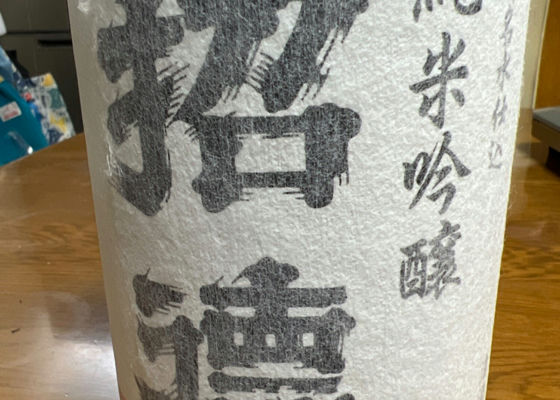 名水仕込
純米吟醸
招德